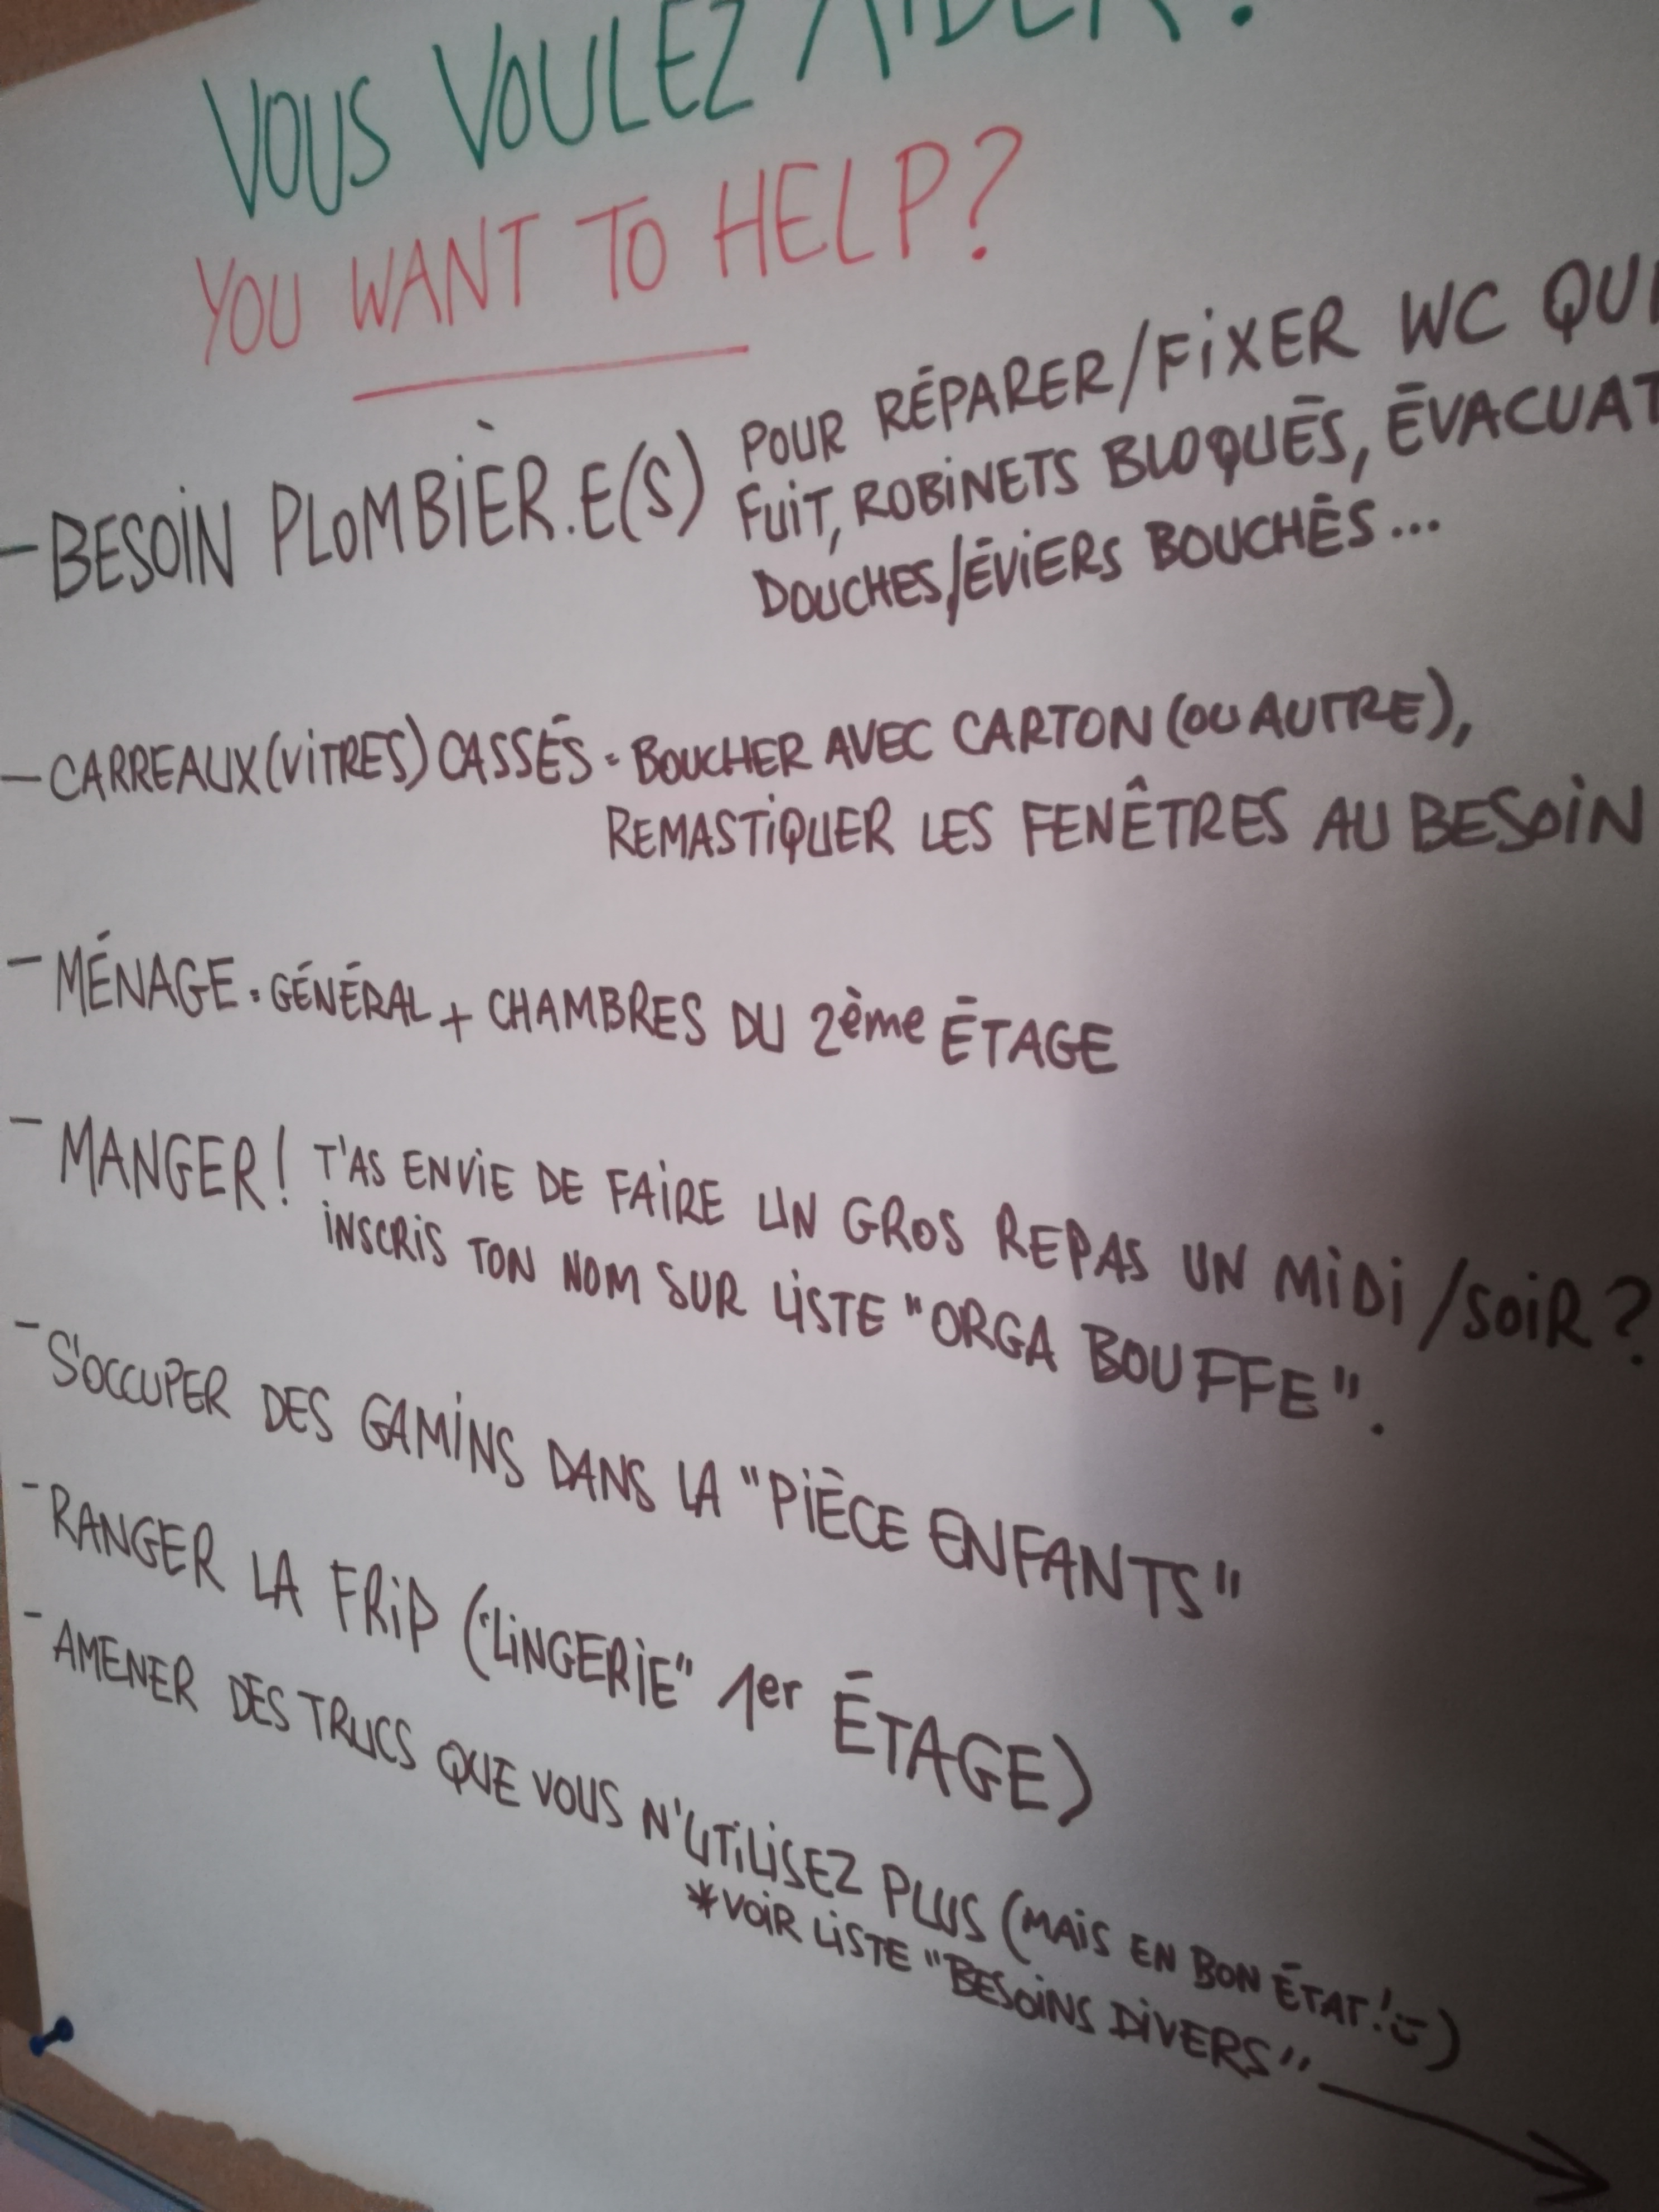 VOUS VOULEZ AIDER ?
YOU WANT TO HELP?
- BESOIN PLOMBIÈR.E(S) POUR RÉPARER/FIXER WC QUI
FUIT, ROBINETS BLOQUÉS, ÉVACUAT
DOUCHES/ÉVIERS BOUCHÉS...
- CARREAUX (VITRES) CASSÉS = BOUCHER AVEC CARTON (OU AUTRE),
REMASTIQUER LES FENÊTRES AU BESOIN
- MÉNAGE = GÉNÉRAL + CHAMBRES DU 2ème ÉTAGE
- MANGER ! T'AS ENVIE DE FAIRE UN GROS REPAS UN MIDI/SOIR ?
INSCRIS TON NOM SUR LISTE "ORGA BOUFFE".
- S'OCCUPER DES GAMINS DANS LA "PIÈCE ENFANTS"
- RANGER LA FRIP ("LINGERIE" 1er ÉTAGE)
- AMENER DES TRUCS QUE VOUS N'UTILISEZ PLUS (MAIS EN BON ÉTAT! :))
* VOIR LISTE "BESOINS DIVERS" →